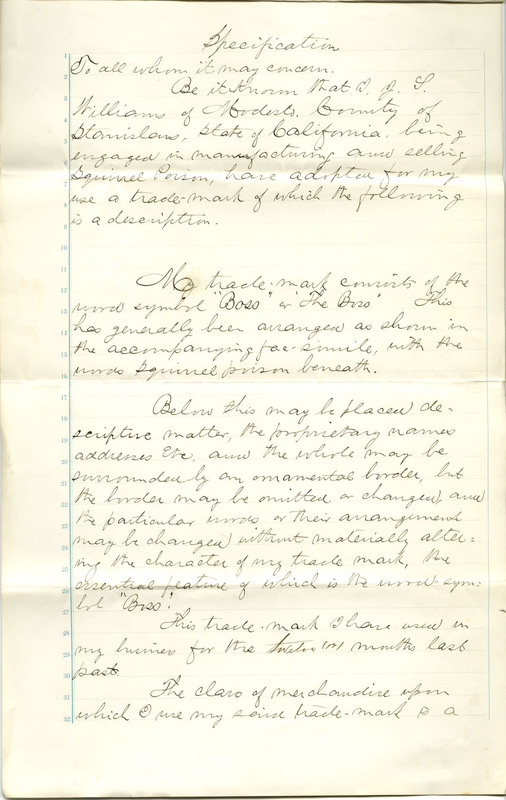 Specification
To all whom it may concern.
Be it known that I, J. S.
Williams of Modesto, County of
Stanislaus, State of California, being
engaged in manufacturing and selling
Squirrel Poison, have adopted for my
use a trade-mark of which the following
is a description.
My trade-mark consists of the
word symbol "Boss" or "The Boss" This
has generally been arranged as shown in
the accompanying fac-simile, with the
words Squirrel poison beneath.
Below this may be placed de-
scriptive matter, the proprietary names
addresses Etc. and the whole may be
surrounded by an ornamental border, but
the border may be omitted or changed, and
the particular words or their arrangement
may be changed without materially alter-
ing the character of my trade mark, the
essential feature of which is the word sym-
bol "Boss".
This trade-mark I have used in
my business for the twelve months last
past.
The class of merchandise upon
which I use my said trade-mark is a
1
2
3
4
5
6
7
8
9
10
11
12
13
14
15
16
17
18
19
20
21
22
23
24
25
26
27
28
29
30
31
32